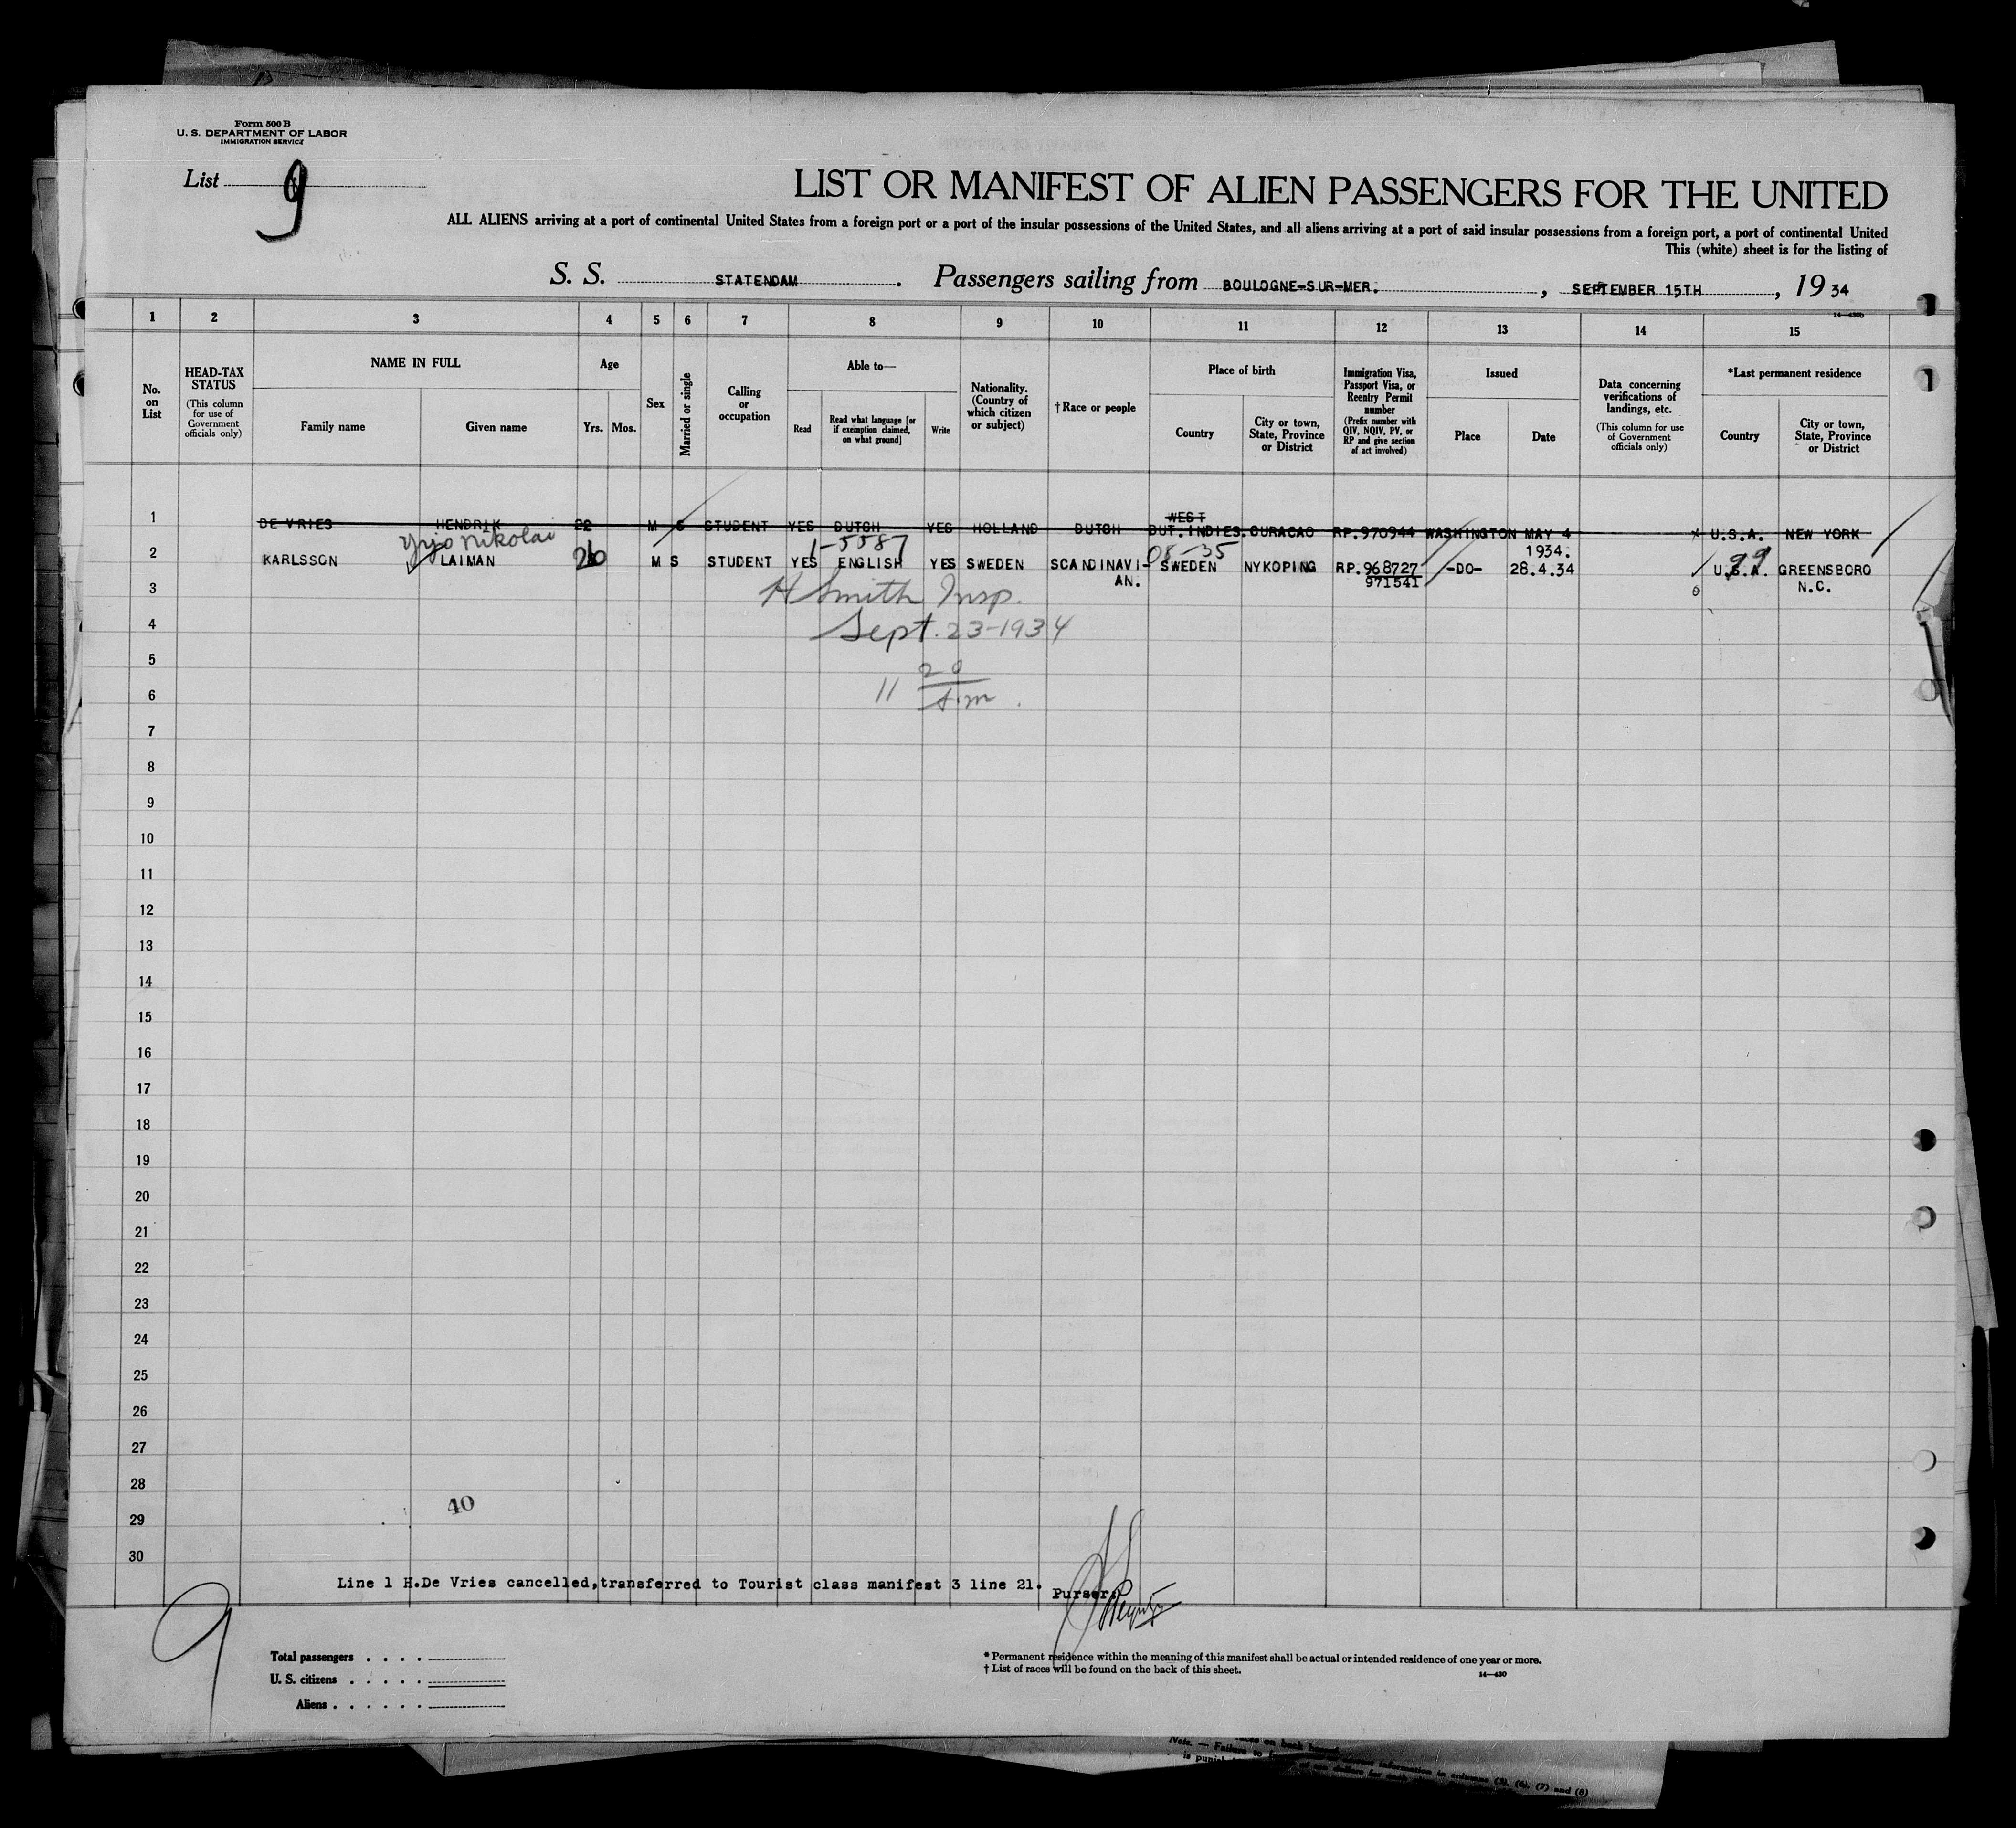 Form 500 B
U. S. DEPARTMENT OF LABOR
IMMIGRATION SERVICE
List 9
LIST OR MANIFEST OF ALIEN PASSENGERS FOR THE UNITED
ALL ALIENS arriving at a port of continental United States from a foreign port or a port of the insular possessions of the United States, and all aliens arriving at a port of said insular possessions from a foreign port, a port of continental United
This (white) sheet is for the listing of
S. S. STATENDAM. Passengers sailing from BOULOGNE-SUR-MER. , SEPTEMBER 15TH , 19 34
14—430b
1 2 3 4 5 6 7 8 9 10 11 12 13 14 15
No. on List
HEAD-TAX STATUS (This column for use of Government officials only)
NAME IN FULL
Family name Given name
Age
Yrs. Mos.
Sex
Married or single
Calling or occupation
Able to—
Read
Read what language [or if exemption claimed, on what ground]
Write
Nationality. (Country of which citizen or subject)
†Race or people
Place of birth
Country
City or town, State, Province or District
Immigration Visa, Passport Visa, or Reentry Permit number (Prefix number with QIV, NQIV, PV, or RP and give section of act involved)
Issued
Place Date
Data concerning verifications of landings, etc. (This column for use of Government officials only)
*Last permanent residence
Country
City or town, State, Province or District
WEST
1 DE VRIES HENDRIK 22 M S STUDENT YES DUTCH YES HOLLAND DUTCH DUT. INDIES. CURACAO RP.970944 WASHINGTON MAY 4 x U.S.A. NEW YORK
Yrjo Nikolai 1-5587 08-35 1934. 99
2 KARLSSON LAIMAN 26 M S STUDENT YES ENGLISH YES SWEDEN SCANDINAVI- SWEDEN NYKOPING RP.968727 -DO- 28.4.34 U.S.A. GREENSBORO
AN. 971541 N.C.
3 H Smith Insp.
4 Sept. 23-1934
5 20
6 11
7
8
9
10
11
12
13
14
15
16
17
18
19
20
21
22
23
24
25
26
27
28
40
29
30
Line 1 H.De Vries cancelled,transferred to Tourist class manifest 3 line 21. Purser.
9
Total passengers . . . .
U. S. citizens . . . . .
Aliens . . . . . .
* Permanent residence within the meaning of this manifest shall be actual or intended residence of one year or more.
† List of races will be found on the back of this sheet.
14—430
Note. — Failure to
information in columns (5), (6), (7) and (8)